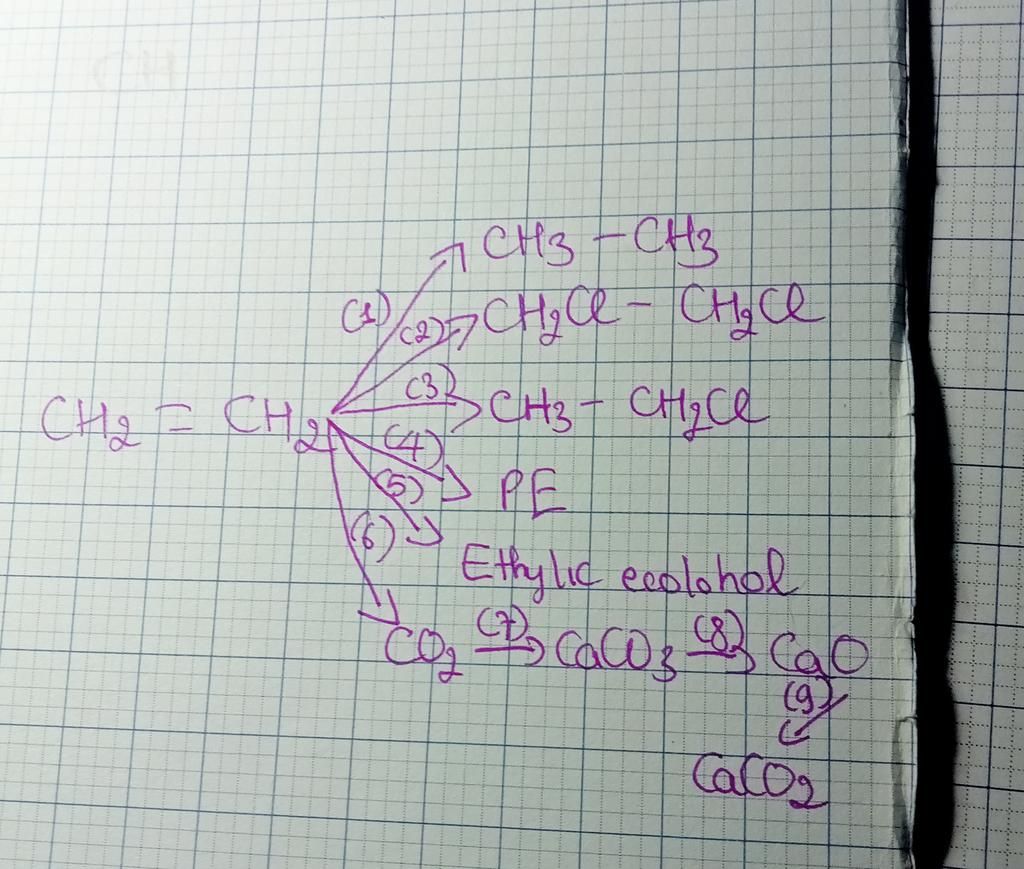 (1) CH3 - CH3
(2) CH2Cl - CH2Cl
CH2 = CH2 (3) CH3 - CH2Cl
(4) PE
(5) Ethylic ecolohol
(6) CO2 (7) CaCO3 (8) CaO
(9)
CaCO2